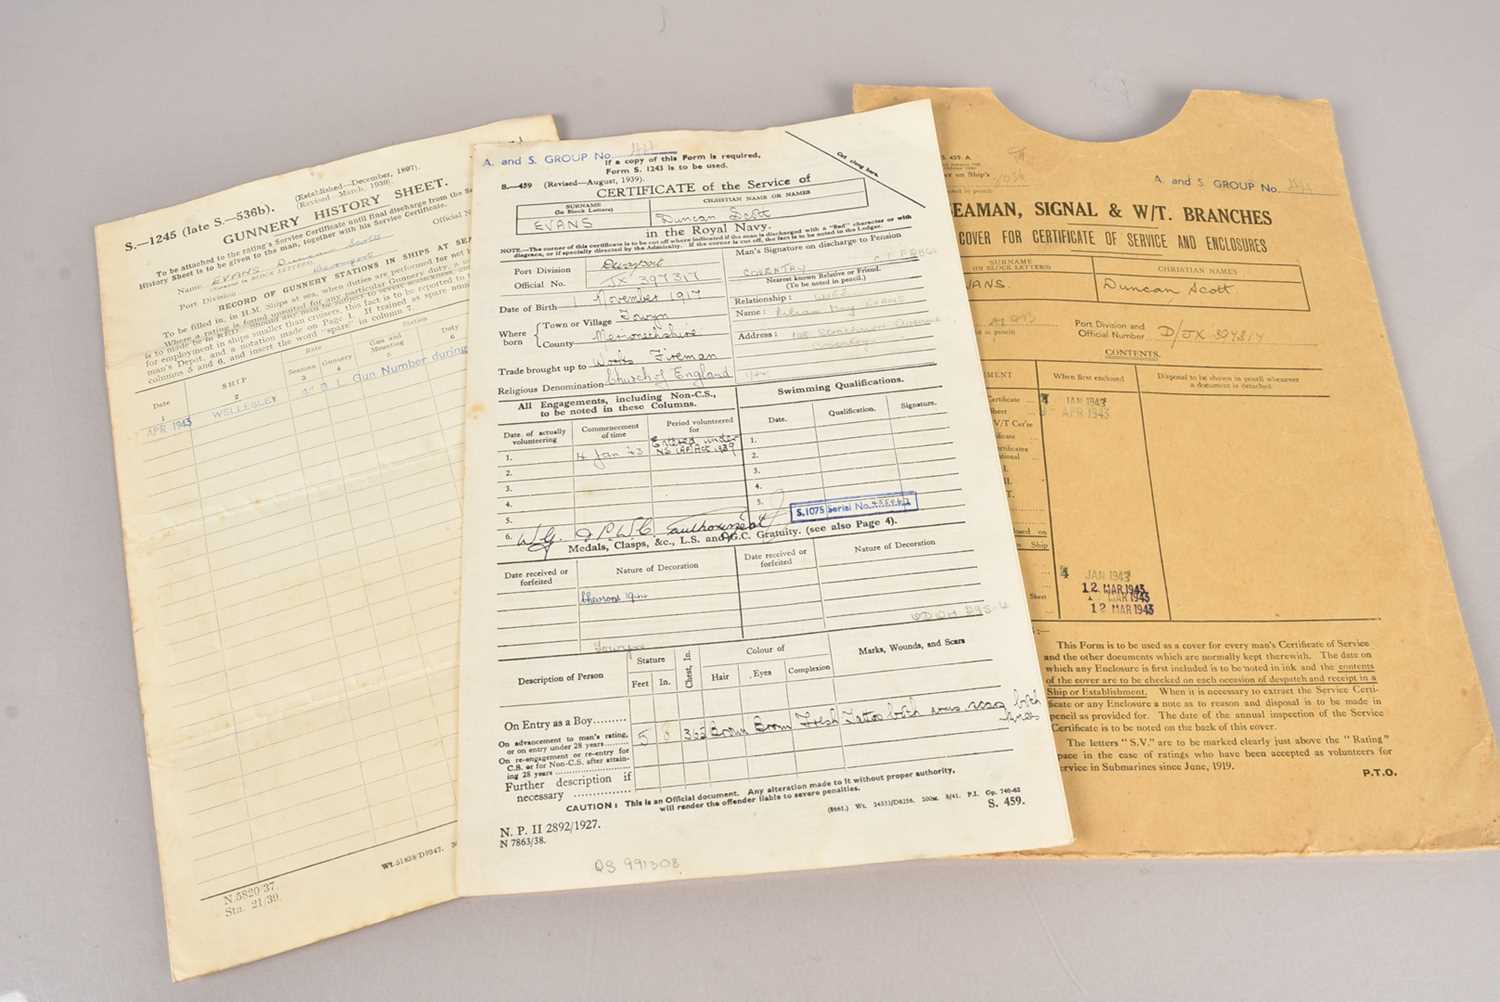 S.—1245 (late S.—536b).
(Established—December, 1897).
(Revised—March, 1939).
GUNNERY HISTORY SHEET.
To be attached to the rating's Service Certificate until final discharge from the Se
History Sheet is to be given to the man, together with his Service Certificate.
Name EVANS Duncan Scott
(Surname in BLOCK LETTERS)
Official No
Port Division Devonport
RECORD OF GUNNERY STATIONS IN SHIPS AT SEA
To be filled in, in H.M. Ships at sea, when duties are performed for not l
Where a rating is found unsuited for any particular Gunnery duty, a
is to be made to R.N.D.
for employment in ships smaller than cruisers, this fact is to be reported to
man's Depot, and a notation made on Page 1. If trained as spare num
columns 5 and 6, and insert the word "spare" in column 7.
Date
SHIP
Rate
Seaman
Gunnery
Gun and
Mounting
Station
Duty
1
2
3
4
5
6
APR 1943
WELLESLEY
Gun Number during
N.5820/37.
Sta. 21/39.
A. and S. GROUP No.
If a copy of this Form is required,
Form S. 1243 is to be used.
Cut along here.
S.—459 (Revised—August, 1939).
CERTIFICATE of the Service of
SURNAME
(In Block Letters)
CHRISTIAN NAME OR NAMES
EVANS
Duncan Scott
in the Royal Navy.
NOTE—The corner of this certificate is to be cut off where indicated if the man is discharged with a "Bad" character or with
disgrace, or if specially directed by the Admiralty. If the corner is cut off, the fact is to be noted in the Ledger.
Port Division
Devonport
Official No.
JX 397317
Man's Signature on discharge to Pension
COVENTRY
Nearest known Relative or Friend.
(To be noted in pencil.)
Date of Birth 1 November 1917
Where
born
Town or Village Towyn
County Merionethshire
Relationship: WIFE
Name: Lilian May EVANS
Address:
Coventry
Trade brought up to Works Fireman
Religious Denomination Church of England
All Engagements, including Non-C.S.,
to be noted in these Columns.
Swimming Qualifications.
Date of actually
volunteering
Commencement
of time
Period volunteered
for
Date.
Qualification.
Signature.
1.
4 Jan 43
Entered under
NS (AF) Act 1939
1.
2.
2.
3.
3.
4.
4.
5.
5.
6.
W.G.
S.1075 Serial No.
Medals, Clasps, &c., L.S. and G.C. Gratuity. (see also Page 4).
Date received or
forfeited
Nature of Decoration
Date received or
forfeited
Nature of Decoration
Description of Person
Stature
Feet
In.
Chest, In.
Colour of
Hair
Eyes
Complexion
Marks, Wounds, and Scars
On Entry as a Boy
On advancement to man's rating,
or on entry under 28 years
5
Brown
Brown
Fresh
Tattoo both arms scars both
knees
On re-engagement or re-entry for
C.S. or for Non-C.S. after attain-
ing 28 years
Further description if
necessary
CAUTION: This is an Official document. Any alteration made to it without proper authority,
will render the offender liable to severe penalties.
N. P. II 2892/1927.
N 7863/38.
S. 459.
QS 991308
S. 459. A
er on Ship's
A. and S. GROUP No.
SEAMAN, SIGNAL & W/T. BRANCHES
COVER FOR CERTIFICATE OF SERVICE AND ENCLOSURES
SURNAME
(IN BLOCK LETTERS)
CHRISTIAN NAMES
VANS.
Duncan, Scott.
Port Division and
Official Number
D/JX 397317
CONTENTS.
MENT
When first enclosed
Disposal to be shown in pencil whenever
a document is detached
JAN 1943
APR 1943
JAN 1943
12 MAR 1943
MAR 1943
12 MAR 1943
This Form is to be used as a cover for every man's Certificate of Service
and the other documents which are normally kept therewith. The date on
which any Enclosure is first included is to be noted in ink and the contents
of the cover are to be checked on each occasion of despatch and receipt in a
Ship or Establishment. When it is necessary to extract the Service Certi-
ficate or any Enclosure a note as to reason and disposal is to be made in
pencil as provided for. The date of the annual inspection of the Service
Certificate is to be noted on the back of this cover.
The letters "S.V." are to be marked clearly just above the "Rating"
space in the case of ratings who have been accepted as volunteers for
service in Submarines since June, 1919.
P.T.O.